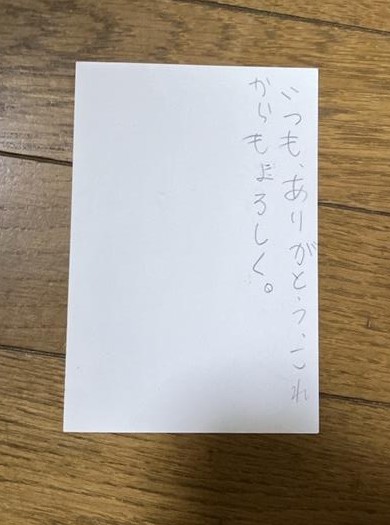 いつも、ありがとう、これ
からもよろしく。